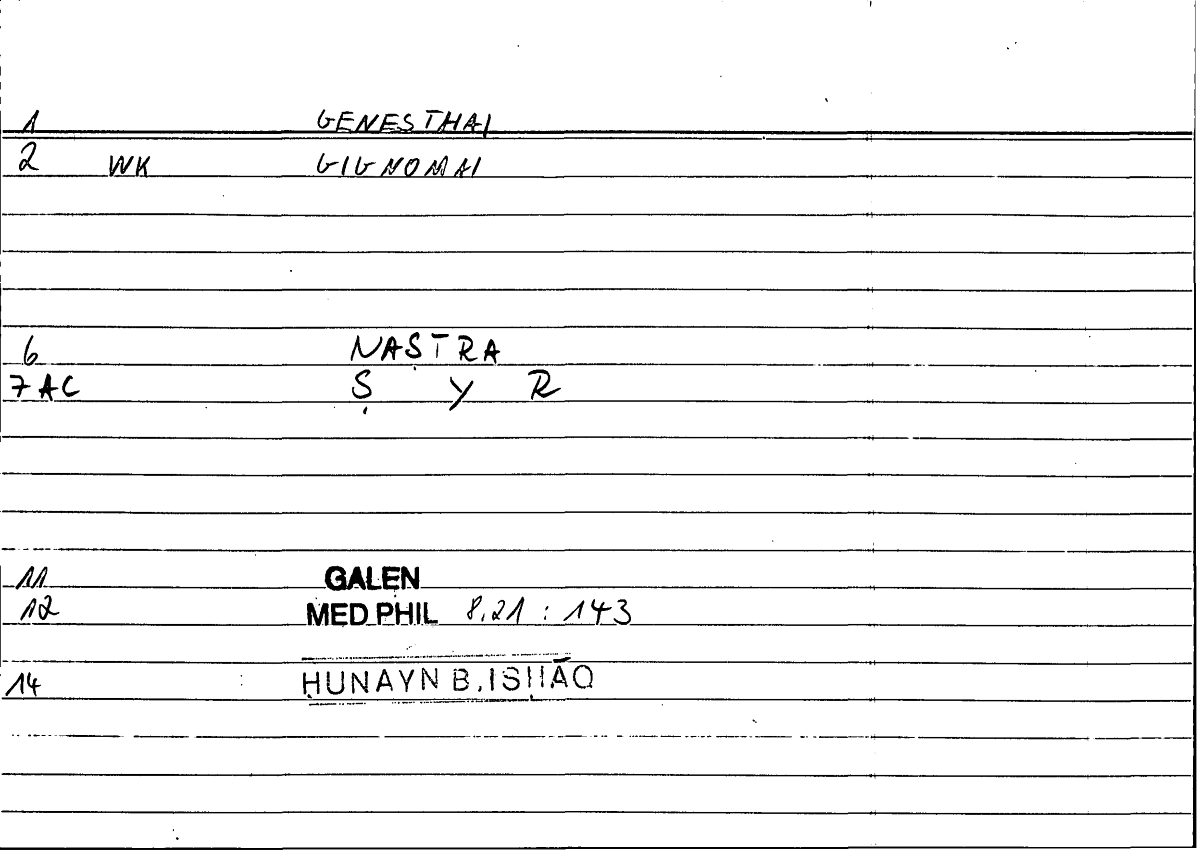 1 GENESTHAI
2 WK GIGNOMAI
6 NAṢTRA
7 AC Ṣ Y R
11 GALEN
12 MED PHIL 8,21 : 143
14 ḤUNAYN B. ISḤĀQ